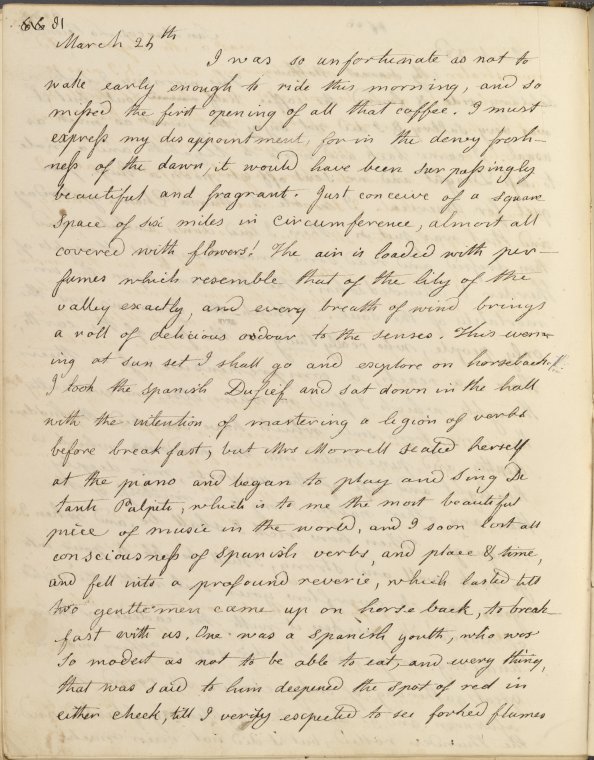 March 25th
I was so unfortunate as not to
wake early enough to ride this morning, and so
missed the first opening of all that coffee. I must
express my disappointment, for in the dewy fresh-
ness of the dawn, it would have been surpassingly
beautiful and fragrant. Just conceive of a square
space of six miles in circumference, almost all
covered with flowers! The air is loaded with per-
fumes which resemble that of the lily of the
valley exactly, and every breath of wind brings
a roll of delicious odour to the senses. This even-
ing at sun set I shall go and explore on horseback.
I took the Spanish Dufief and sat down in the hall
with the intention of mastering a legion of verbs
before breakfast, but Mrs Morrell seated herself
at the piano and began to play and sing Di
tanti Palpiti, which is to me the most beautiful
piece of music in the world, and I soon lost all
consciousness of Spanish verbs, and place & time,
and fell into a profound reverie, which lasted till
two gentlemen came up on horse back, to break-
fast with us. One was a Spanish youth, who was
so modest as not to be able to eat, and every thing,
that was said to him deepened the spot of red in
either cheek, till I verily expected to see forked flames